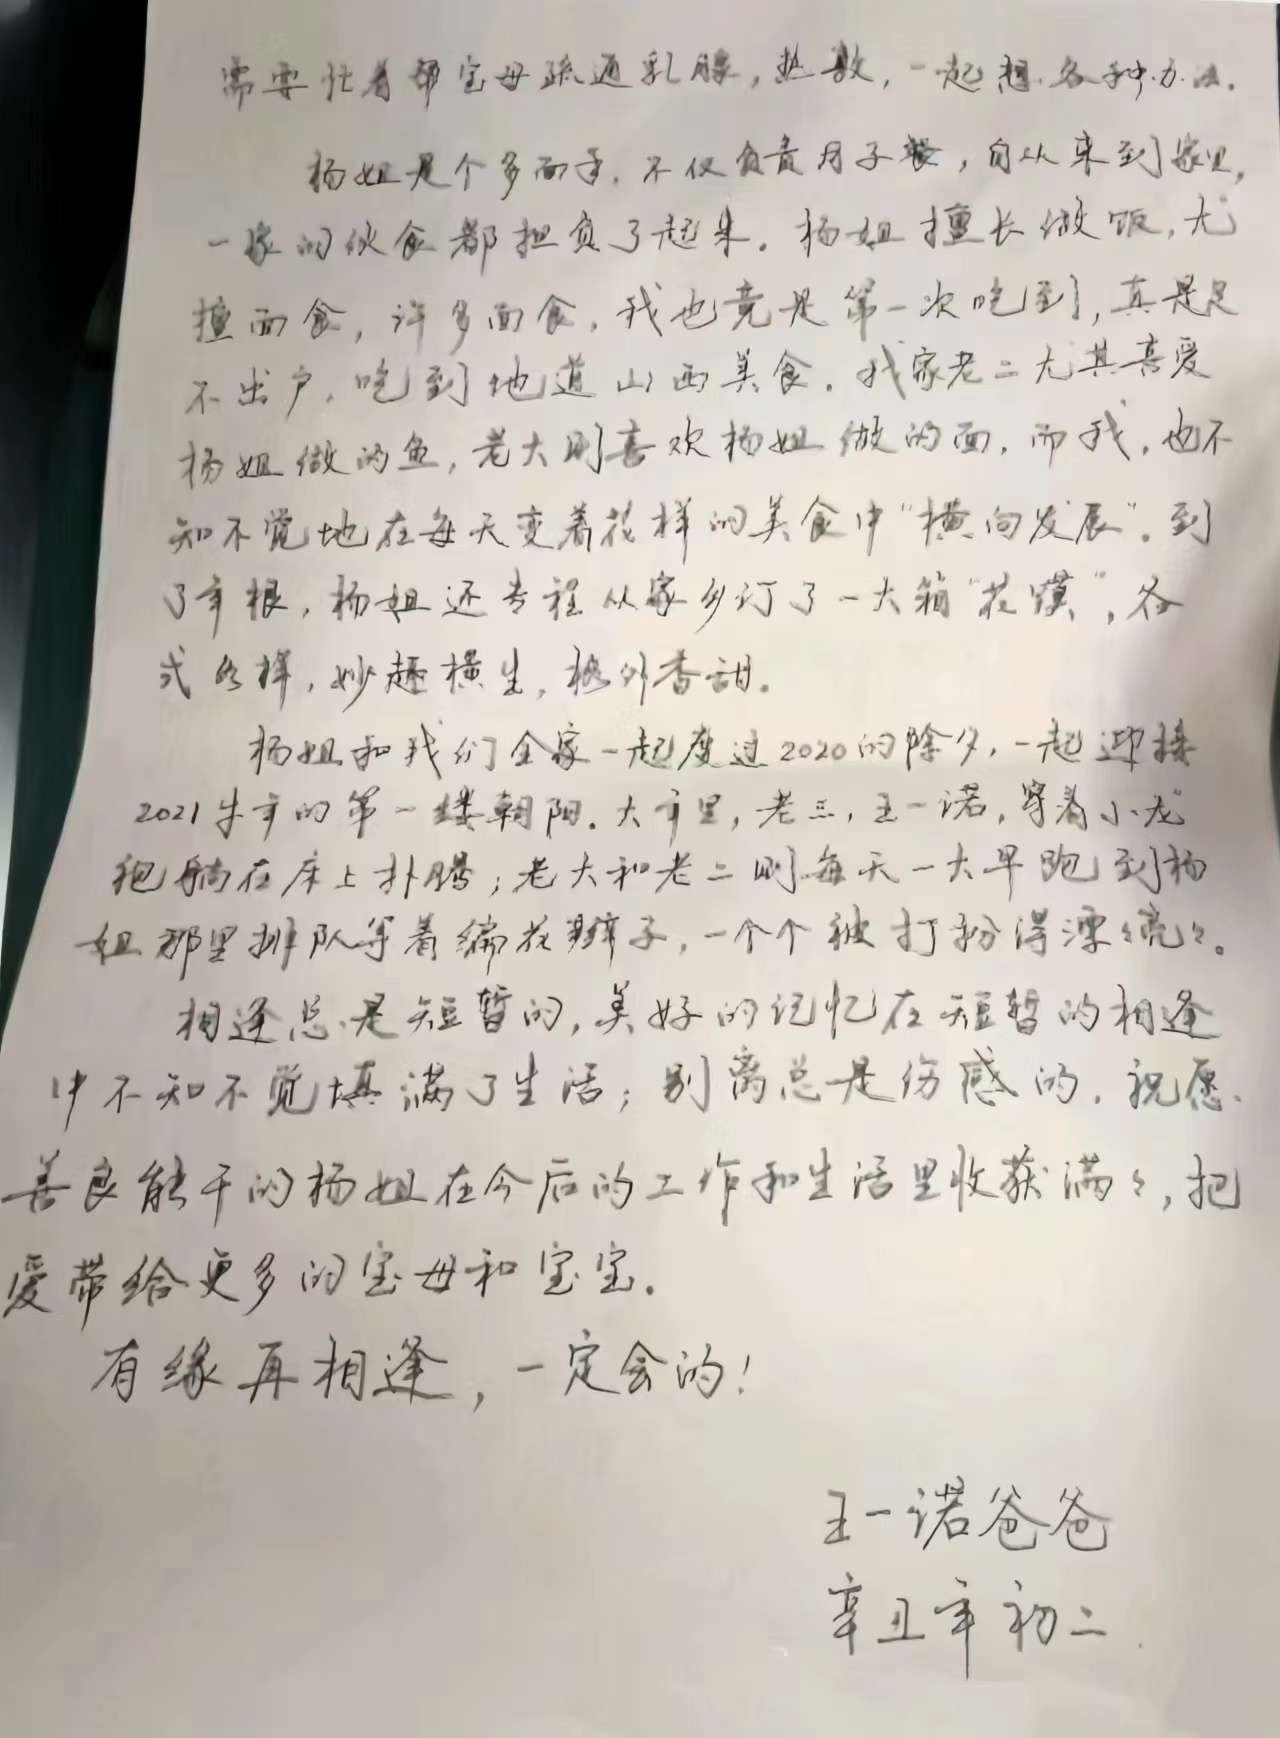 需要忙着帮宝母疏通乳腺，热敷，一起想各种办法。
杨姐是个多面手，不仅负责月子餐，自从来到家里，
一家的伙食都担负了起来。杨姐擅长做饭，尤
擅面食，许多面食，我也竟是第一次吃到，真是足
不出户，吃到地道山西美食。我家老二尤其喜爱
杨姐做的鱼，老大则喜欢杨姐做的面，而我，也不
知不觉地在每天变着花样的美食中“横向发展”。到
了年根，杨姐还专程从家乡订了一大箱“花馍”，各
式各样，妙趣横生，格外香甜。
杨姐和我们全家一起度过2020的除夕，一起迎接
2021牛年的第一缕朝阳。大年里，老三，王一诺，穿着小龙
袍躺在床上扑腾；老大和老二则每天一大早跑到杨
姐那里排队等着编花辫子，一个个被打扮得漂々亮々。
相逢总是短暂的，美好的记忆在短暂的相逢
中不知不觉填满了生活；别离总是伤感的，祝愿
善良能干的杨姐在今后的工作和生活里收获满々，把
爱带给更多的宝母和宝宝。
有缘再相逢，一定会的！
王一诺爸爸
辛丑年初二